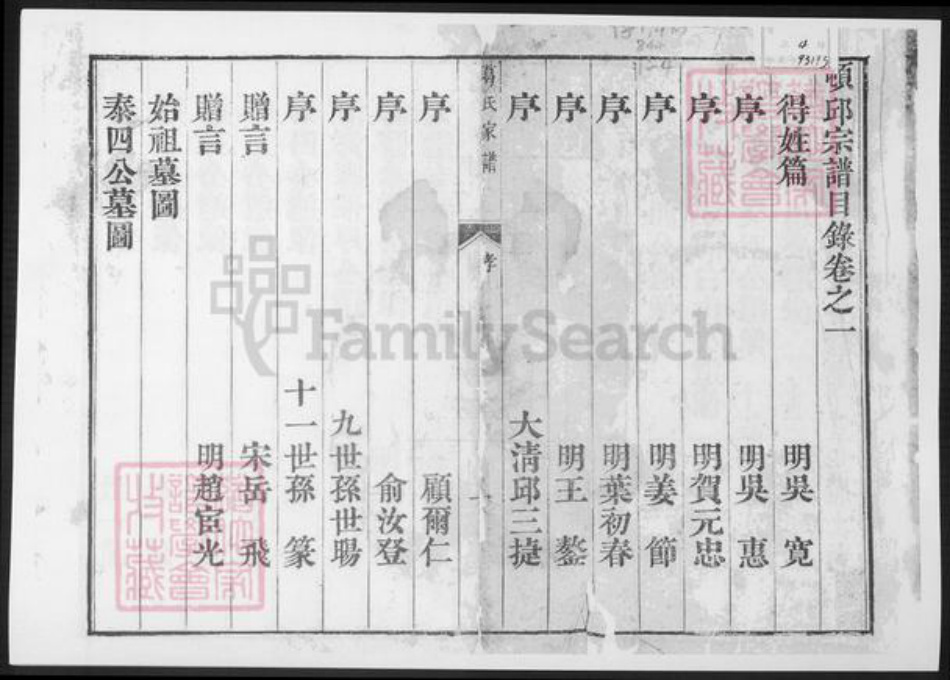 頓邱宗譜目錄卷之一
得姓篇 明吳 寬
序 明吳 惠
序 明賀元忠
序 明姜 節
序 明葉初春
序 明王 鏊
序 大清邱三捷
氏家譜
孝
一
序 顧爾仁
序 俞汝登
序 九世孫世暘
序 十一世孫 篆
贈言 宋岳 飛
贈言 明趙宦光
始祖墓圖
泰四公墓圖
FamilySearch
93195